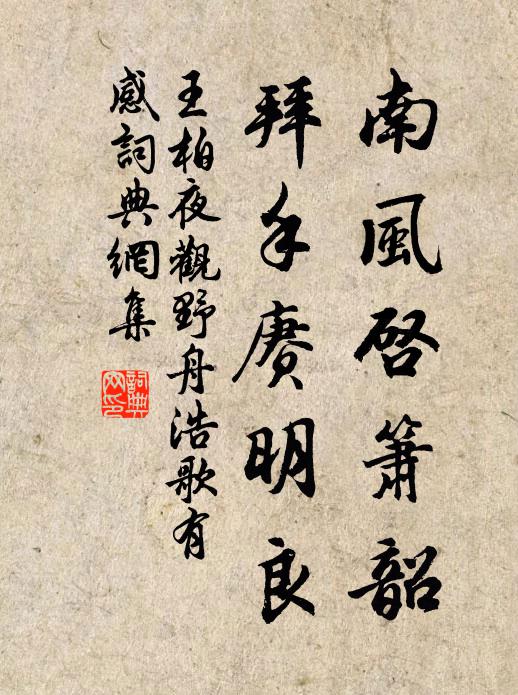 南風啓簫韶
拜手賡明良
王柏夜觀野舟浩歌有
感詞典網集
詞典網印